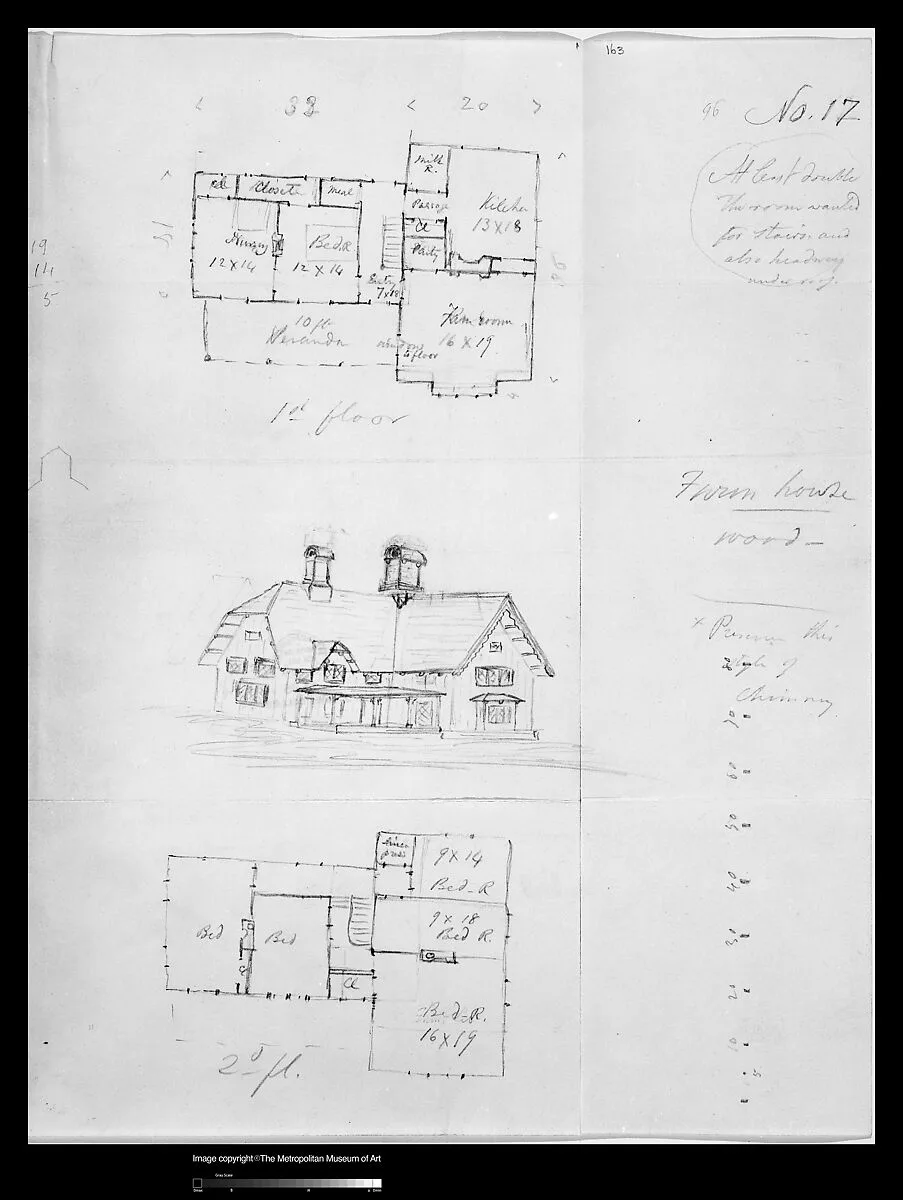 163
33
20
96 No. 17
At least double
the room wanted
for stairs and
also headway
under roof.
Milk
R.
Closets
Passage
Kitchen
13 X 18
Cl
Nursery
12 X 14
Bed.R
12 X 14
Entry
Family room
16 X 19
10 ft
Veranda
windows
to floor
19
14
5
1st floor
Farm house
wood –
x Preserve this
style of
Chimney
80
70
60
50
40
30
20
10
5
9 X 14
Bed-R
9 X 18
Bed R.
Bed
Bed
Cl
Bed-R.
16 X 19
2d fl.
Image copyright©The Metropolitan Museum of Art
Gray Scale